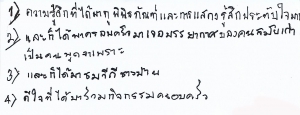 1) ความรู้สึกที่ได้มาดูพิพิธภัณฑ์และการแสดงรู้สึกประทับใจมาก
2) และก็ได้มา ครอบครัวมาเจอบรรยากาศของคนสมัยเก่า
เป็นคน
3) และก็ได้มา
4) ดีใจที่ได้มาร่วมกิจกรรมครอบครัว